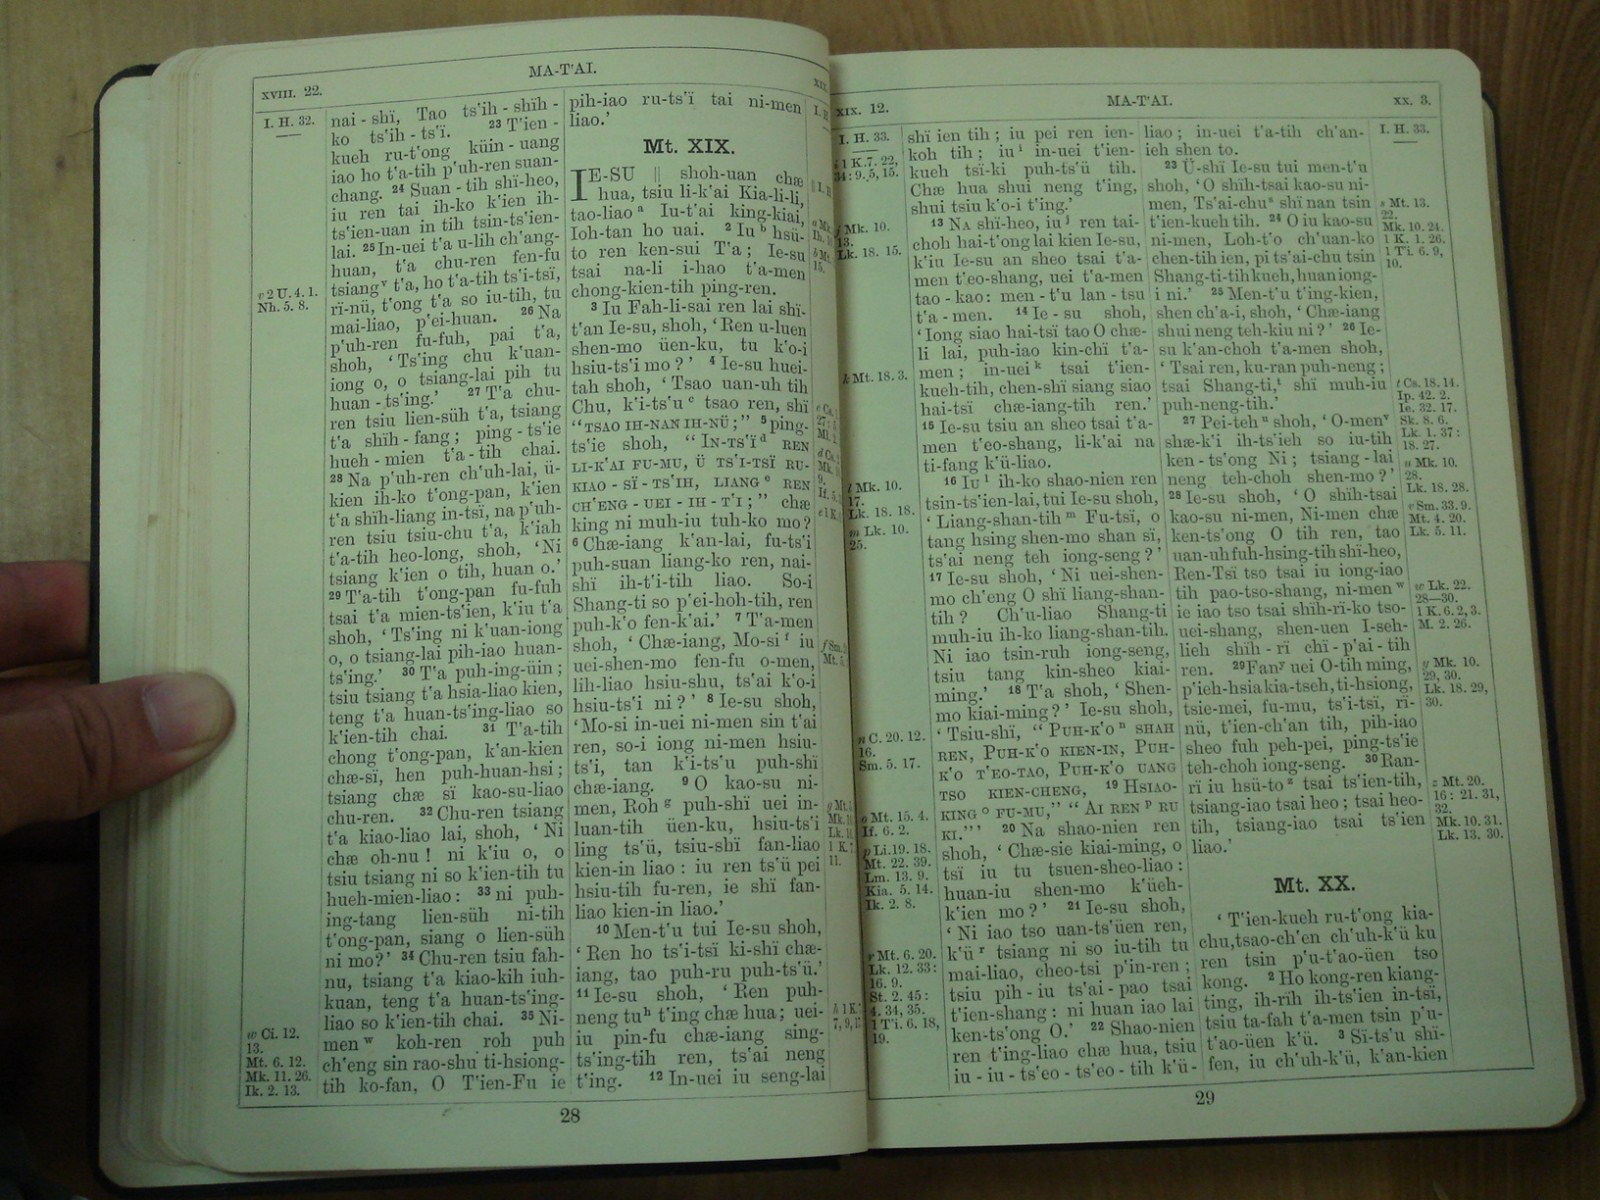 MA-T'AI.
XVIII. 22.
I. H. 32.
v 2 U. 4. 1.
Nh. 5. 8.
w Ci. 12.
13.
Mt. 6. 12.
Mk. 11. 26.
Ik. 2. 13.
nai-shï, Tao ts'ih-shïh-
ko ts'ih-ts'ï. 23 T'ien-
kueh ru-t'ong küin-uang
iao ho t'a-tih p'uh-ren suan-
chang. 24 Suan-tih shï-heo,
iu ren tai ih-ko k'ien ih-
ts'ien-uan in-tih tsin-ts'ien-
lai. 25 In-uei t'a u-lih ch'ang-
huan, t'a chu-ren fen-fu
tsiang v t'a, ho t'a-tih ts'i-tsï,
rï-nü, t'ong t'a so iu-tih, tu
mai-liao, p'ei-huan. 26 Na
p'uh-ren fu-fuh, pai t'a,
shoh, ‘Ts'ing chu k'uan-
iong o, o tsiang-lai pih tu
huan-ts'ing.’ 27 T'a chu-
ren tsiu lien-süh t'a, tsiang
t'a shïh-fang; ping-ts'ie
hueh-mien t'a-tih chai.
28 Na p'uh-ren ch'uh-lai, ü-
kien ih-ko t'ong-pan, k'ien
t'a shïh-liang in-tsï, na p'uh-
ren tsiu tsiu-chu t'a, k'iah
t'a-tih heo-long, shoh, ‘Ni
tsiang k'ien o tih, huan o.’
29 T'a-tih t'ong-pan fu-fuh
tsai t'a mien-ts'ien, k'iu t'a
shoh, ‘Ts'ing ni k'uan-iong
o, o tsiang-lai pih-iao huan-
ts'ing.’ 30 T'a puh-ing-üin;
tsiu tsiang t'a hsia-liao kien,
teng t'a huan-ts'ing-liao so
k'ien-tih chai. 31 T'a-tih
chong t'ong-pan, k'an-kien
chæ-sï, hen puh-huan-hsi;
tsiang chæ sï kao-su-liao
chu-ren. 32 Chu-ren tsiang
t'a kiao-liao lai, shoh, ‘Ni
chæ oh-nu! ni k'iu o, o
tsiu tsiang ni so k'ien-tih tu
hueh-mien-liao: 33 ni puh-
ing-tang lien-süh ni-tih
t'ong-pan, siang o lien-süh
ni mo?’ 34 Chu-ren tsiu fah-
nu, tsiang t'a kiao-kih iuh-
kuan, teng t'a huan-ts'ing-
liao so k'ien-tih chai. 35 Ni-
men w koh-ren roh puh
ch'eng sin rao-shu ti-hsiong-
tih ko-fan, O T'ien-Fu ie
pih-iao ru-ts'ï tai ni-men
liao.’
Mt. XIX.
IE-SU || shoh-uan chæ
hua, tsiu li-k'ai Kia-li-li,
tao-liao a Iu-t'ai king-kiai,
Ioh-tan ho uai. 2 Iu b hsü-
to ren ken-sui T'a; Ie-su
tsai na-li i-hao t'a-men
chong-kien-tih ping-ren.
3 Iu Fah-li-sai ren lai shï-
t'an Ie-su, shoh, ‘Ren u-luen
shen-mo üen-ku, tu k'o-i
hsiu-ts'i mo?’ 4 Ie-su huei-
tah shoh, ‘Tsao uan-uh tih
Chu, k'i-ts'u c tsao ren, shï
“TSAO IH-NAN IH-NÜ;” 5 ping-
ts'ie shoh, “IN-TS'Ï d REN
LI-K'AI FU-MU, Ü TS'I-TSÏ RU-
KIAO-SÏ-TS'IH, LIANG e REN
CH'ENG-UEI-IH-T'I;” chæ
king ni muh-iu tuh-ko mo?
6 Chæ-iang k'an-lai, fu-ts'i
puh-suan liang-ko ren, nai-
shï ih-t'i-tih liao. So-i
Shang-ti so p'ei-hoh-tih, ren
puh-k'o fen-k'ai.’ 7 T'a-men
shoh, ‘Chæ-iang, Mo-si f iu
uei-shen-mo fen-fu o-men,
lih-liao hsiu-shu, ts'ai k'o-i
hsiu-ts'i ni?’ 8 Ie-su shoh,
‘Mo-si in-uei ni-men sin t'ai
ren, so-i iong ni-men hsiu-
ts'i, tan k'i-ts'u puh-shï
chæ-iang. 9 O kao-su ni-
men, Roh g puh-shï uei in-
luan-tih üen-ku, hsiu-ts'i
ling ts'ü, tsiu-shï fan-liao
kien-in liao: iu ren ts'ü pei
hsiu-tih fu-ren, ie shï fan-
liao kien-in liao.’
10 Men-t'u tui Ie-su shoh,
‘Ren ho ts'i-tsï ki-shï chæ-
iang, tao puh-ru puh-ts'ü.’
11 Ie-su shoh, ‘Ren puh-
neng tu h t'ing chæ hua; uei-
iu pin-fu chæ-iang sing-
ts'ing-tih ren, ts'ai neng
t'ing. 12 In-uei iu seng-lai
28
XIX. 12.
MA-T'AI.
XX. 3.
I. H. 33.
i 1 K. 7. 22,
34: 9. 5, 15.
j Mk. 10.
13.
Lk. 18. 15.
k Mt. 18. 3.
l Mk. 10.
17.
Lk. 18. 18.
m Lk. 10.
25.
n C. 20. 12.
16.
Sm. 5. 17.
o Mt. 15. 4.
If. 6. 2.
p Li. 19. 18.
Mt. 22. 39.
Lm. 13. 9.
Kia. 5. 14.
Ik. 2. 8.
r Mt. 6. 20.
Lk. 12. 33:
16. 9.
St. 2. 45:
4. 34, 35.
1 T'i. 6. 18,
19.
shï ien tih; iu pei ren ien-
koh tih; iu i in-uei t'ien-
kueh tsï-ki puh-ts'ü tih.
Chæ hua shui neng t'ing,
shui tsiu k'o-i t'ing.’
13 NA shï-heo, iu j ren tai-
choh hai-t'ong lai kien Ie-su,
k'iu Ie-su an sheo tsai t'a-
men t'eo-shang, uei t'a-men
tao-kao: men-t'u lan-tsu
t'a-men. 14 Ie-su shoh,
‘Iong siao hai-tsï tao O chæ-
li lai, puh-iao kin-chï t'a-
men; in-uei k tsai t'ien-
kueh-tih, chen-shï siang siao
hai-tsï chæ-iang-tih ren.’
15 Ie-su tsiu an sheo tsai t'a-
men t'eo-shang, li-k'ai na
ti-fang k'ü-liao.
16 Iu l ih-ko shao-nien ren
tsin-ts'ien-lai, tui Ie-su shoh,
‘Liang-shan-tih m Fu-tsï, o
tang hsing shen-mo shan sï,
ts'ai neng teh iong-seng?’
17 Ie-su shoh, ‘Ni uei-shen-
mo ch'eng O shï liang-shan-
tih? Ch'u-liao Shang-ti
muh-iu ih-ko liang-shan-tih.
Ni iao tsin-ruh iong-seng,
tsiu tang kin-sheo kiai-
ming.’ 18 T'a shoh, ‘Shen-
mo kiai-ming?’ Ie-su shoh,
‘Tsiu-shï, “PUH-K'O n SHAH
REN, PUH-K'O KIEN-IN, PUH-
K'O T'EO-TAO, PUH-K'O UANG
TSO KIEN-CHENG, 19 HSIAO-
KING o FU-MU,” “AI REN p RU
KI.”’ 20 Na shao-nien ren
shoh, ‘Chæ-sie kiai-ming, o
tsï iu tu tsuen-sheo-liao:
huan-iu shen-mo k'üeh-
k'ien mo?’ 21 Ie-su shoh,
‘Ni iao tso uan-ts'üen ren,
k'ü r tsiang ni so iu-tih tu
mai-liao, cheo-tsi p'in-ren;
tsiu pih-iu ts'ai-pao tsai
t'ien-shang: ni huan iao lai
ken-ts'ong O.’ 22 Shao-nien
ren t'ing-liao chæ hua, tsiu
iu-iu-ts'eo-ts'eo-tih k'ü-
liao; in-uei t'a-tih ch'an-
ieh shen to.
23 Ü-shï Ie-su tui men-t'u
shoh, ‘O shïh-tsai kao-su ni-
men, Ts'ai-chu s shï nan tsin
t'ien-kueh tih. 24 O iu kao-su
ni-men, Loh-t'o ch'uan-ko
chen-tih ien, pi ts'ai-chu tsin
Shang-ti-tih kueh, huan iong-
i ni.’ 25 Men-t'u t'ing-kien,
shen ch'a-i, shoh, ‘Chæ-iang
shui neng teh-kiu ni?’ 26 Ie-
su k'an-choh t'a-men shoh,
‘Tsai ren, ku-ran puh-neng;
tsai Shang-ti, t shï muh-iu
puh-neng-tih.’
27 Pei-teh u shoh, ‘O-men v
shæ-k'i ih-ts'ieh so iu-tih
ken-ts'ong Ni; tsiang-lai
neng teh-choh shen-mo?’
28 Ie-su shoh, ‘O shïh-tsai
kao-su ni-men, Ni-men chæ
ken-ts'ong O tih ren, tao
uan-uh fuh-hsing-tih shï-heo,
Ren-Tsï tso tsai iu iong-iao
tih pao-tso-shang, ni-men w
ie iao tso tsai shïh-rï-ko tso-
uei-shang, shen-uen I-seh-
lieh shïh-rï chï-p'ai-tih
ren. 29 Fan y uei O-tih ming,
p'ieh-hsia kia-tseh, ti-hsiong,
tsie-mei, fu-mu, ts'i-tsï, rï-
nü, t'ien-ch'an tih, pih-iao
sheo fuh peh-pei, ping-ts'ie
teh-choh iong-seng. 30 Ran-
rï iu hsü-to z tsai ts'ien-tih,
tsiang-iao tsai heo; tsai heo-
tih, tsiang-iao tsai ts'ien
liao.’
Mt. XX.
‘T'ien-kueh ru-t'ong kia-
chu, tsao-ch'en ch'uh-k'ü ku
ren tsin p'u-t'ao-üen tso
kong. 2 Ho kong-ren kiang-
ting, ih-rïh ih-ts'ien in-tsï,
tsiu ta-fah t'a-men tsin p'u-
t'ao-üen k'ü. 3 Sï-ts'u shï-
fen, iu ch'uh-k'ü, k'an-kien
I. H. 33.
s Mt. 13.
22.
Mk. 10. 24.
1 K. 1. 26.
1 T'i. 6. 9,
10.
t Cs. 18. 14.
Ip. 42. 2.
Ie. 32. 17.
Sk. 8. 6.
Lk. 1. 37:
18. 27.
u Mk. 10.
28.
Lk. 18. 28.
v Sm. 33. 9.
Mt. 4. 20.
Lk. 5. 11.
w Lk. 22.
28—30.
1 K. 6. 2, 3.
M. 2. 26.
y Mk. 10.
29, 30.
Lk. 18. 29,
30.
z Mt. 20.
16: 21. 31,
32.
Mk. 10. 31.
Lk. 13. 30.
29